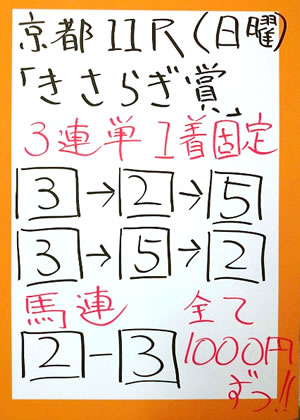 京都11R(日曜)
「きさらぎ賞」
3連単1着固定
3→2→5
3→5→2
馬連 全て
2-3 1000円
ずつ!!